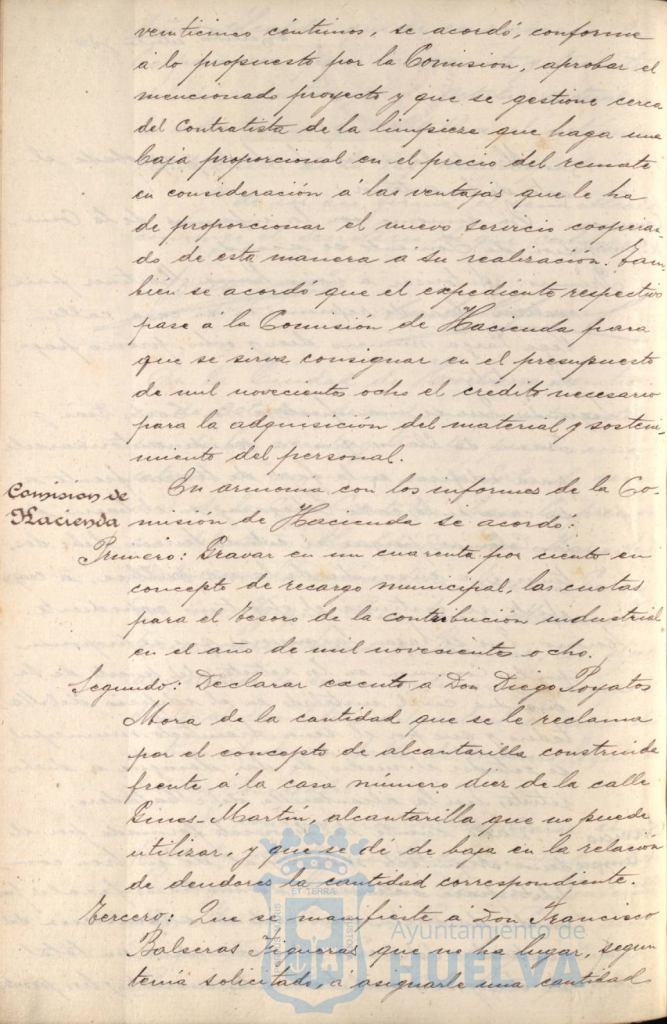 veinticinco céntimos, se acordó, conforme
á lo propuesto por la Comision, aprobar el
mencionado proyecto y que se gestione cerca
del Contratista de la limpieza que haga una
baja proporcional en el precio del remate
en consideración á las ventajas que le ha
de proporcionar el nuevo servicio cooperan-
do de esta manera á su realización. Tam-
bien se acordó que el expediente respectivo
pase á la Comisión de Hacienda para
que se sirva consignar en el presupuesto
de mil novecientos ocho el crédito necesario
para la adquisición del material y sosteni-
miento del personal.
Comision de
Hacienda
En armonia con los informes de la Co-
misión de Hacienda se acordó:
Primero: Gravar en un cuarenta por ciento en
concepto de recargo municipal, las cuotas
para el Tesoro de la contribución industrial
en el año de mil novesientes ocho.
Segundo: Declarar excento á Don Diego Poyatos
Mora de la cantidad que se le reclama
por el concepto de alcantarilla construida
frente á la casa número diez de la calle
Gines-Martin, alcantarilla que no puede
utilizar, y que se dé de baja en la relación
de deudores la cantidad correspondiente.
Tercero: Que se manifieste á Don Francisco
Balseras Figueras que no ha lugar, segun
tenia solicitado, á asignarle una cantidad
Ayuntamiento de
HUELVA
ET TERRA